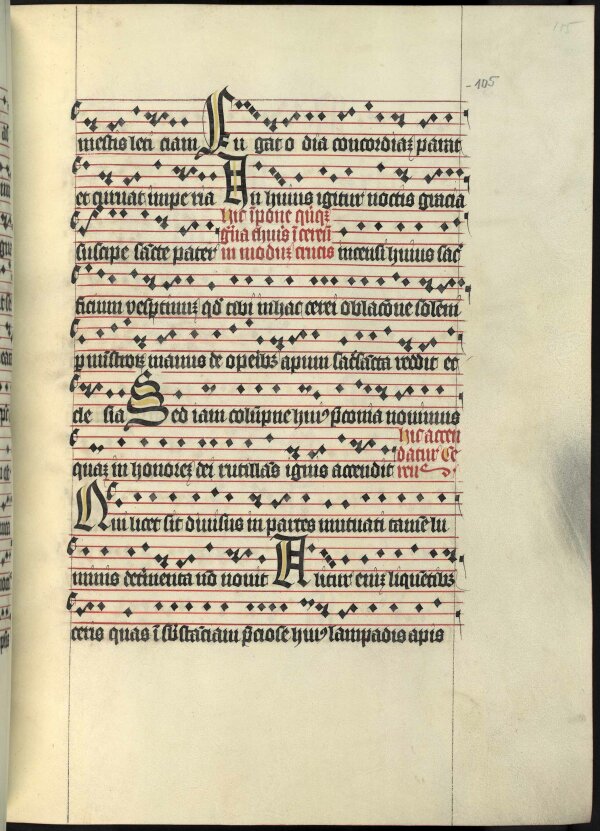 105
mestis leticiam Fugat odia concordiaz parat
et curuat imperia In huius igitur noctis gracia
suscipe sancte pater hic īpone qūqz
grāa thuris ī cereū
in moduz crucis incensi huius sac
ficium vesptinuz qd̄ tibi in hac cerei oblacōne solem
p ministroz manus de opeibz apum sacsācta reddit ec
clesia Sed iam colūpne huiꝰ pconia nouimus
quaz in honorez dei rutillās ignis accendit hic accen
datur Ce
reus
Qui licet sit diuisus in partes mutuati tamē lu
minis detrimenta nō nouit Alitur enī liquētibz
ceris quas ī substāciam p̄ciose huiꝰ lampadis apis